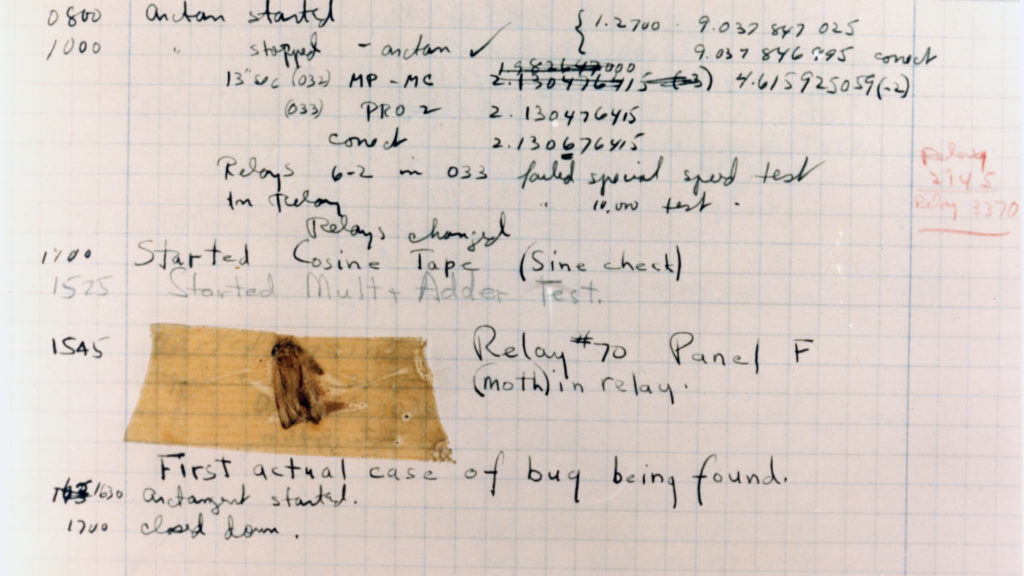 0800 antan started { 1.2700 9.037 847 025
1000 " stopped - antan ✓ 9.037 846 995 conect
13"uc (032) MP-MC 1.982647000 2.130476415 (-3) 4.615925059(-2)
(033) PRO 2 2.130476415
conect 2.130676415
Relays 6-2 in 033 failed special speed test
In Relay " 10.000 test .
Relay
2145
Relay 3370
Relays changed
1700 Started Cosine Tape (Sine check)
1525 Started Mult + Adder Test.
1545 Relay #70 Panel F
(moth) in relay.
First actual case of bug being found.
1630 antangent started.
1700 closed down.